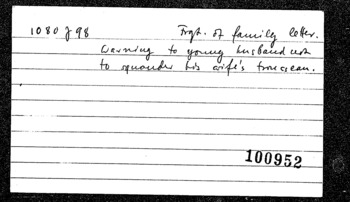 1080 J 98 Frgt. of family letter.
Warning to young husband not
to squander his wife's trousseau.
100952